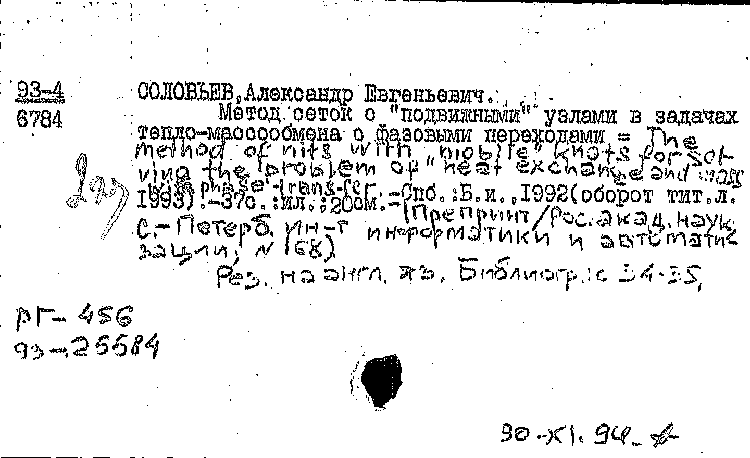 93-4
6784
СОЛОВЬЕВ, Александр Евгеньевич.
Метод сеток с "подвижными" узлами в задачах
тепло-массообмена с фазовыми переходами = The
method of nits with "mobile" knots for sol
ving the problem of heat exchange and mass
with phase transfer. -Спб.: Б.и., 1992(оборот тит.л.
1993).-37с.:ил.; 20см.-(Препринт/Рос.акад.наук.
С.-Петерб. ин-т информатики и автомати-
зации, N 168)
Рез. на англ. яз. Библиогр.: с 34-35,
РГ- 456
93-25584
30-XI.94.